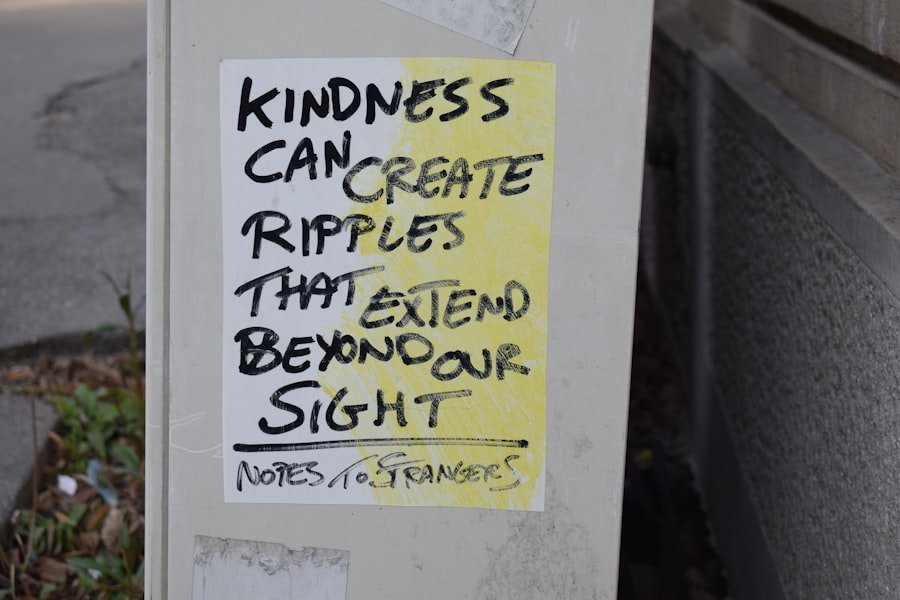 KINDNESS
CAN CREATE
RIPPLES
THAT EXTEND
BEYOND OUR
SIGHT
NOTES TO STRANGERS